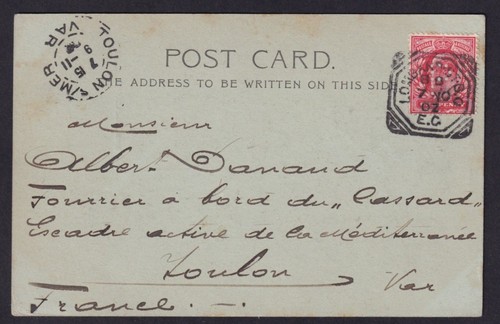 POST CARD.
THE ADDRESS TO BE WRITTEN ON THIS SIDE
TOULON S/MER
VAR
LONDON
7 NO
02
E.C
Monsieur
Albert Danand
Fourrier à bord du „Cassard"
Escadre active de la Méditerranée
Toulon
Var
France. —.—